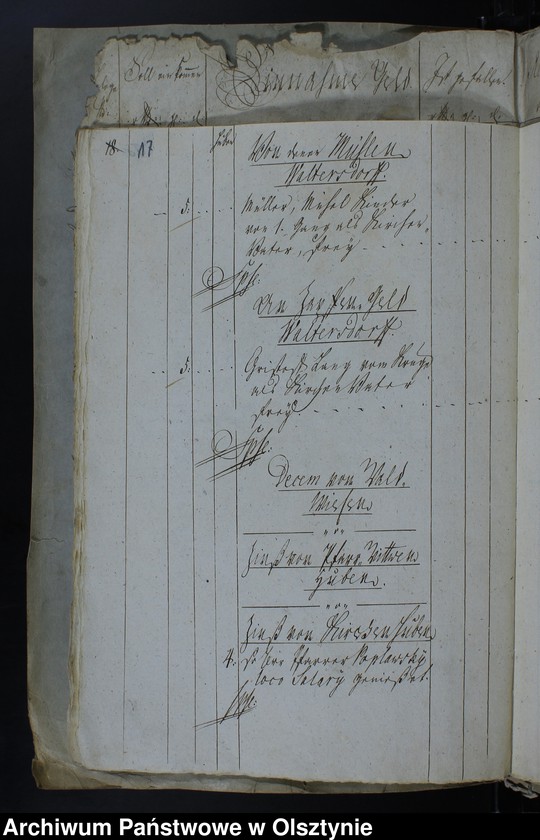 Soll einkommen
Einnahme Geld
Ist gefallen.
18. 17
Huben
Von denen Mühlen
Waltersdorff.
5. Müller, Michel Kinder
von 1. Gang als Kirchen-
Vater, frey
Sple:
An Zapfen-Geld
Waltersdorff.
5. Gristoff Lang vom Kruge
als Kirchen Vater
frey
Sple:
Decem von Wald-
Wiesen
Zinß von Pfarr-Wittwen
Huben.
Zinß von Kirchen Huben
4. so Herr Pfarrer Poplawsky
loco Salary genießet.
Archiwum Państwowe w Olsztynie